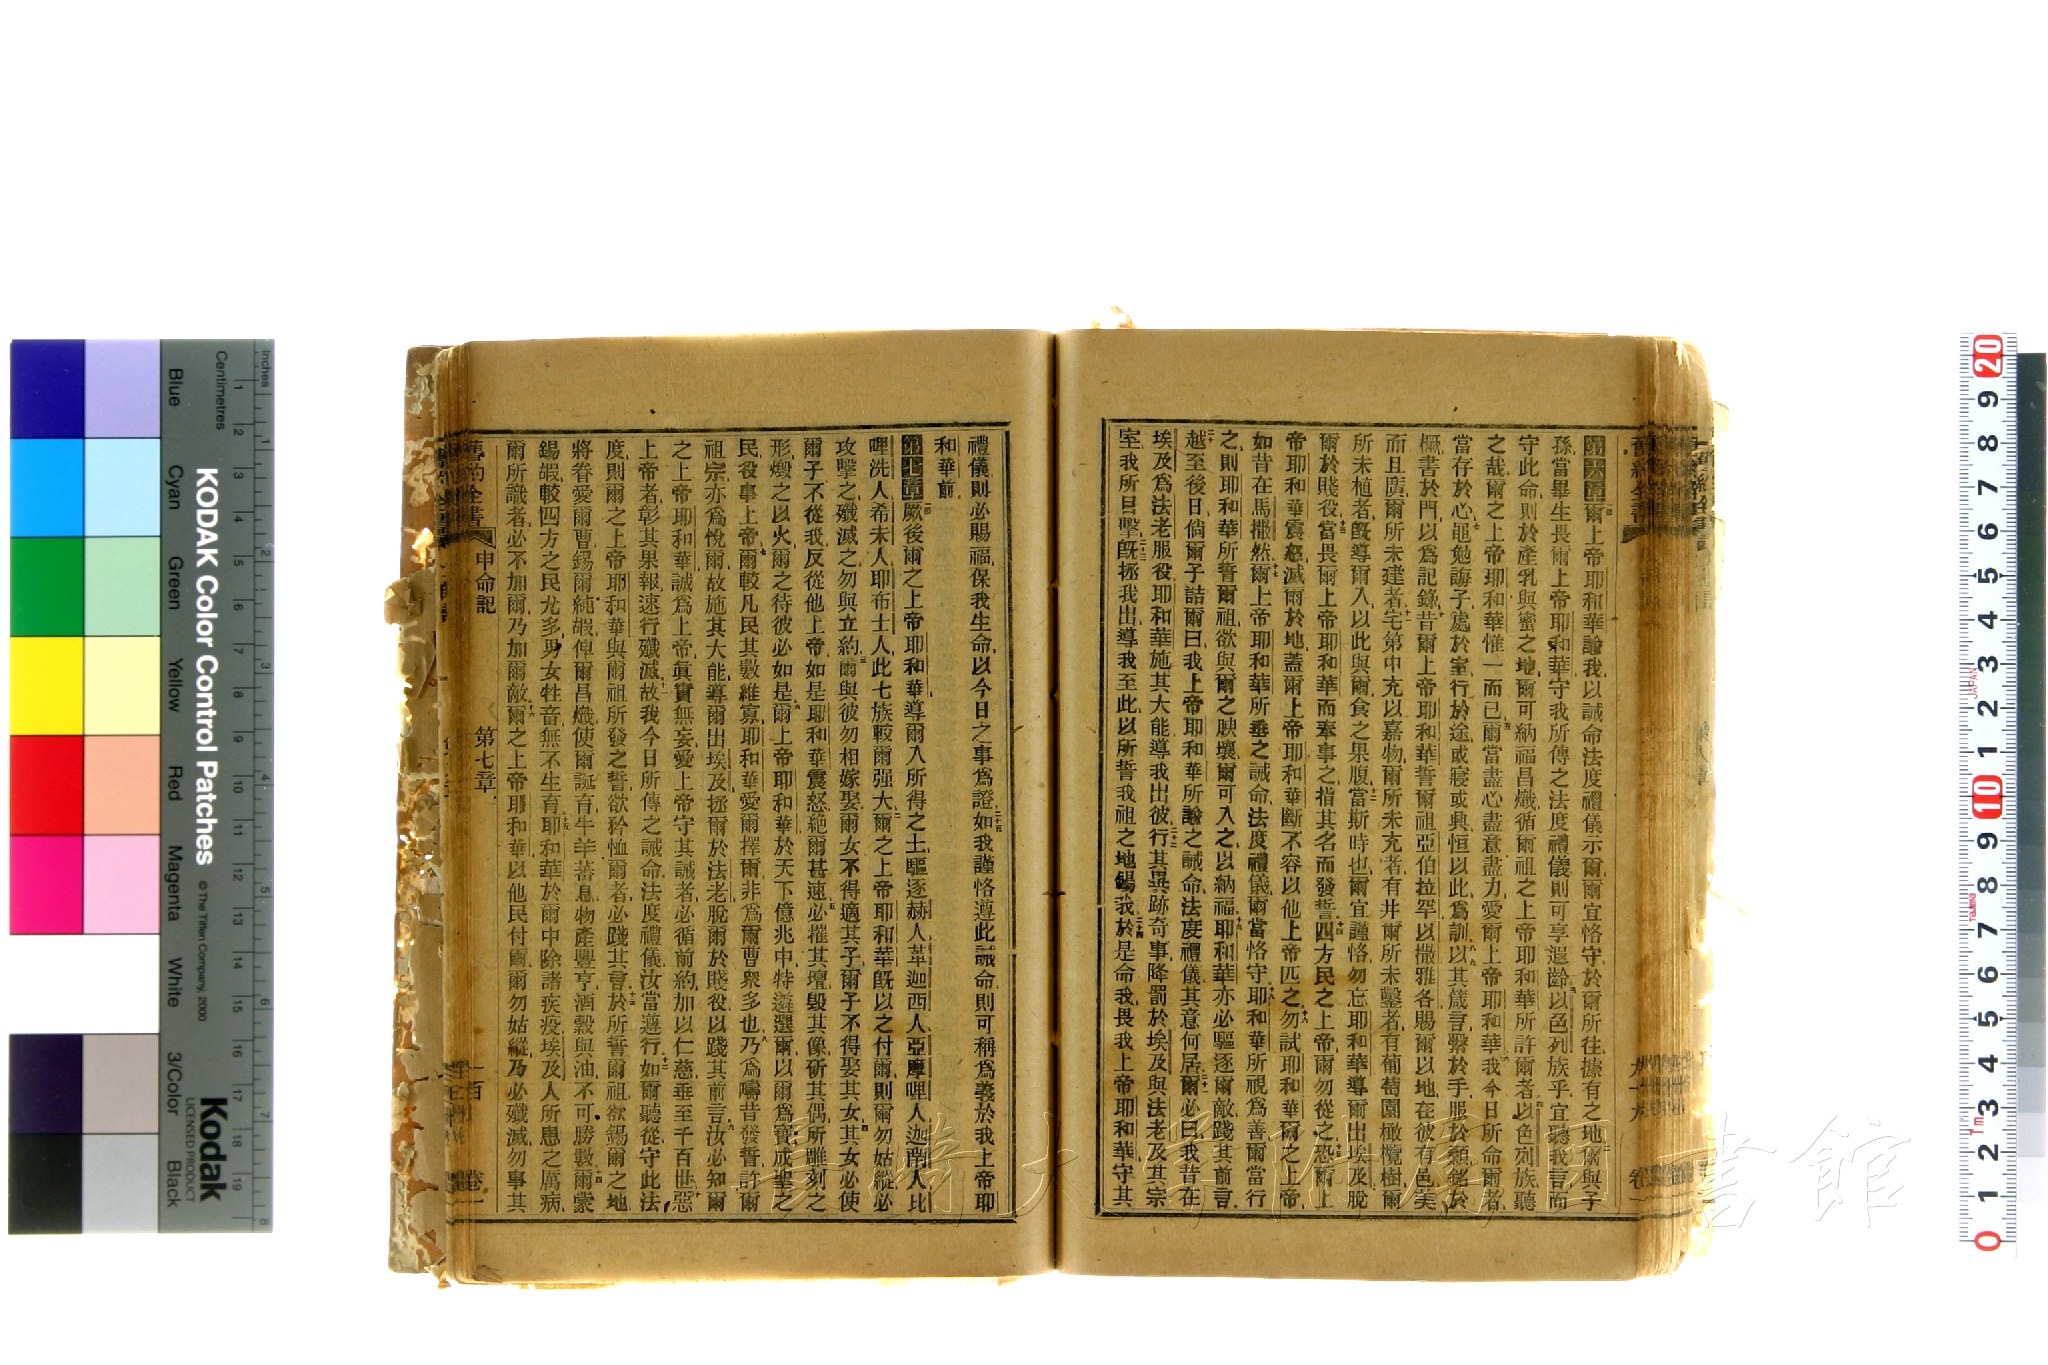 第六章爾上帝耶和華諭我以誡命法度禮儀示爾爾宜恪守於爾所往據有之地爾與子
孫當畢生長爾上帝耶和華守我所傳之法度禮儀則可享遐齡以色列族乎宜聽我言而
守此命則於產乳與蜜之地爾可納福昌熾循爾祖之上帝耶和華所許爾者以色列族聽
之哉爾之上帝耶和華惟一而已爾當盡心盡意盡力愛爾上帝耶和華我今日所命爾者
當存於心黽勉誨子處於室行於途或寢或興恒以此爲訓以其箴言繫於手服於額銘於
橛書於門以爲記錄昔爾上帝耶和華誓爾祖亞伯拉罕以撒雅各賜爾以地在彼有邑美
而且廣爾所未建者宅第中充以嘉物爾所未充者有井爾所未鑿者有葡萄園橄欖樹爾
所未植者旣導爾入以此與爾食之果腹當斯時也爾宜謹恪勿忘耶和華導爾出埃及脫
爾於賤役當畏爾上帝耶和華而奉事之指其名而發誓四方民之上帝爾勿從之恐爾上
帝耶和華震怒滅爾於地蓋爾上帝耶和華斷不容以他上帝匹之勿試耶和華爾之上帝
如昔在馬撒然爾上帝耶和華所垂之誡命法度禮儀爾當恪守耶和華所視爲善爾當行
之則耶和華所誓爾祖欲與爾之腴壤爾可入之以納福耶和華亦必驅逐爾敵踐其前言
越至後日倘爾子詰爾曰我上帝耶和華所諭之誡命法度禮儀其意何居爾必曰我昔在
埃及爲法老服役耶和華施其大能導我出彼行其異跡奇事降罰於埃及與法老及其宗
室我所目擊旣拯我出導我至此以所誓我祖之地錫我於是命我畏我上帝耶和華守其
禮儀則必賜福保我生命以今日之事爲證如我謹恪遵此誡命則可稱爲義於我上帝耶
和華前
第七章厥後爾之上帝耶和華導爾入所得之土驅逐赫人革迦西人亞摩哩人迦南人比
哩洗人希未人耶布士人此七族較爾强大爾之上帝耶和華旣以之付爾則爾勿姑縱必
攻擊之殲滅之勿與立約爾與彼勿相嫁娶爾女不得適其子爾子不得娶其女其女必使
爾子不從我反從他上帝如是耶和華震怒絕爾甚速必摧其壇毀其像斫其偶所雕刻之
形燬之以火爾之待彼必如是爾上帝耶和華於天下億兆中特遴選爾以爾爲寶成聖之
民役事上帝爾較凡民其數維寡耶和華愛爾擇爾非爲爾曹衆多也乃爲疇昔發誓許爾
祖宗亦爲悅爾故施其大能導爾出埃及拯爾於法老脫爾於賤役以踐其前言汝必知爾
之上帝耶和華誠爲上帝眞實無妄愛上帝守其誡者必循前約加以仁慈垂至千百世惡
上帝者彰其果報速行殲滅故我今日所傳之誡命法度禮儀汝當遵行如爾聽從守此法
度則爾之上帝耶和華與爾祖所發之誓欲矜恤爾者必踐其言於所誓爾祖欲錫爾之地
將眷愛爾曹錫爾純嘏俾爾昌熾使爾誕育牛羊蕃息物產豐亨酒穀與油不可勝數爾蒙
錫嘏較四方之民尤多男女牲畜無不生育耶和華於爾中除諸疾疫埃及人所患之厲病
爾所識者必不加爾乃加爾敵爾之上帝耶和華以他民付爾爾勿姑縱乃必殲滅勿事其
舊約全書 申命記 第七章 一百 卷一
KODAK Color Control Patches
© The Tiffen Company, 2000
Kodak
LICENSED PRODUCT
Inches
Centimetres
Blue Cyan Green Yellow Red Magenta White 3/Color Black
JAPAN
長崎大学附属図書館